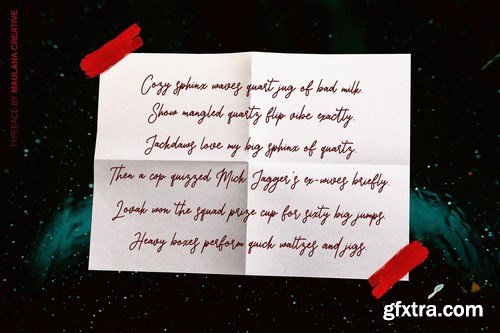 TYPEFACE BY MAULANA CREATIVE
Cozy sphinx waves quart jug of bad milk.
Show mangled quartz flip vibe exactly.
Jackdaws love my big sphinx of quartz.
Then a cop quizzed Mick Jagger's ex-wives briefly.
Lovak won the squad prize cup for sixty big jumps.
Heavy boxes perform quick waltzes and jigs.
gfxtra.com